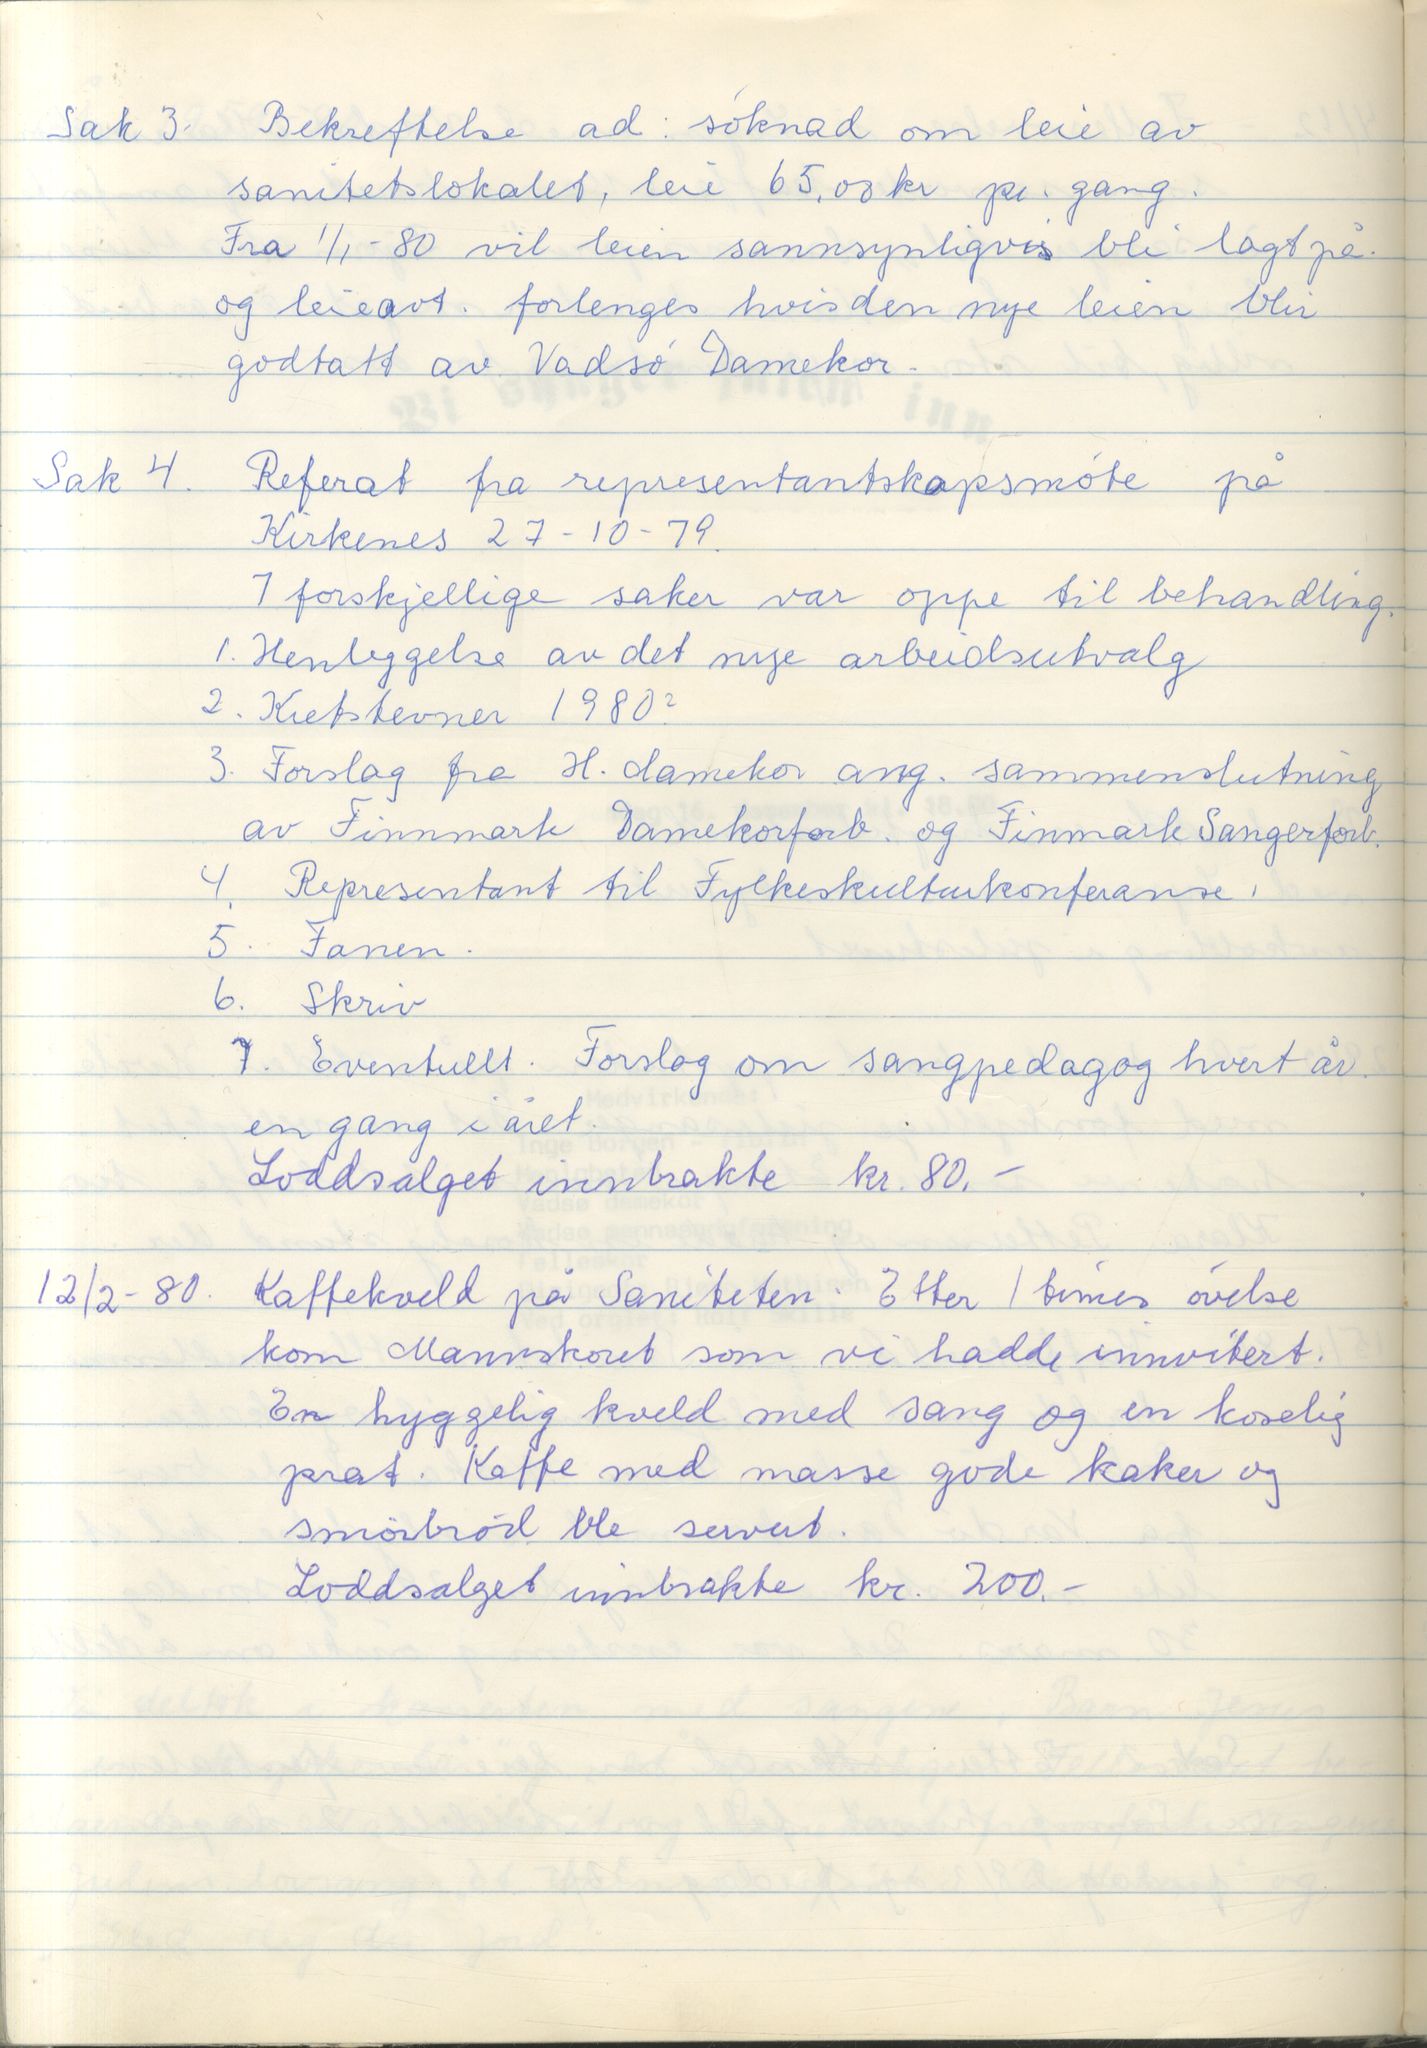 Sak 3. Bekreftelse ad: søknad om leie av
sanitetslokalet, leie 65,00 kr pr. gang.
Fra 1/1-80 vil leien sannsynligvis bli lagt på.
og leieavt. forlenges hvis den nye leien blir
godtatt av Vadsø Damekor.
Sak 4. Referat fra representantskapsmøte på
Kirkenes 27-10-79.
7 forskjellige saker var oppe til behandling.
1. Henleggelse av det nye arbeidsutvalg
2. Kretstevner 1980?
3. Forslag fra H. damekor ang. sammenslutning
av Finnmark Damekorforb. og Finmark Sangerforb.
4. Representant til Fylkeskulturkonferanse.
5. Fanen.
6. Skriv
7. Eventullt. Forslag om sangpedagog hvert år.
en gang i året.
Loddsalget innbrakte kr. 80.-
12/2-80. Kaffekveld på Saniteten. Etter 1 times øvelse
kom Mannskoret som vi hadde innvitert.
En hyggelig kveld med sang og en koselig
prat. Kaffe med masse gode kaker og
smørbrød ble servert.
Loddsalget innbrakte kr. 200.-